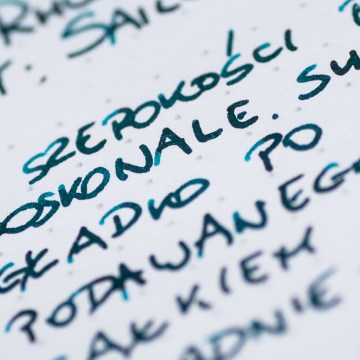 T. SAIL
SZEROKOŚCI
DOSKONALE. SU
GŁADKO PO
PODAWANEGO
AŁKIEM
ADNIE